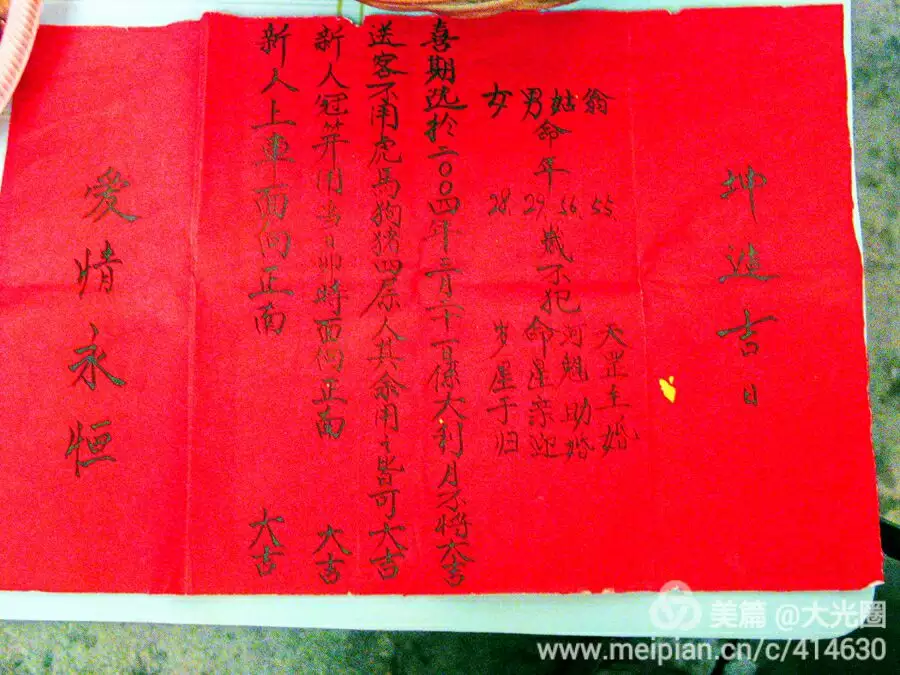 坤造吉日
翁 55 天罡主婚
姑 56 河魁助婚
男命年 29 岁不犯命星亲迎
女 28 岁星于归
喜期选于二〇〇四年二月二十一日係大利月不将大吉
送客不用虎馬狗猪四属人其余用之皆可大吉
新人冠笄用当日卯時面向正南 大吉
新人上車面向正南 大吉
爱情永恒
美篇 @大光圈
www.meipian.cn/c/414630